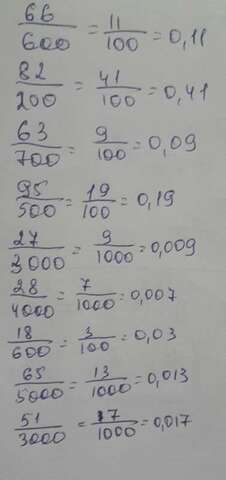 66/600 = 11/100 = 0,11
82/200 = 41/100 = 0,41
63/700 = 9/100 = 0,09
95/500 = 19/100 = 0,19
27/3000 = 9/1000 = 0,009
28/4000 = 7/1000 = 0,007
18/600 = 3/100 = 0,03
65/5000 = 13/1000 = 0,013
51/3000 = 17/1000 = 0,017